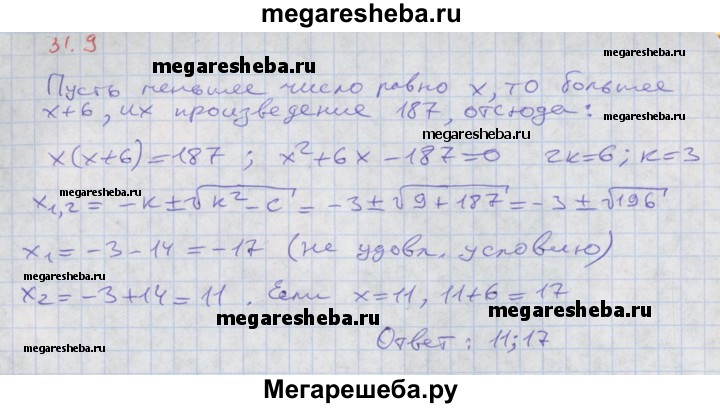 megaresheba.ru
31.9
megaresheba.ru
megaresheba.ru
Пусть меньшее число равно x, то большее
x+6, их произведение 187, отсюда:
megaresheba.ru
x(x+6)=187 ; x²+6x-187=0 2k=6; k=3
x₁,₂= -k±√k²-c = -3±√9+187 = -3±√196
x₁= -3-14=-17 (не удовл. условию)
megaresheba.ru
x₂=-3+14=11. Если x=11, 11+6=17
megaresheba.ru
megaresheba.ru
Ответ: 11;17
megaresheba.ru
Мегарешеба.ру